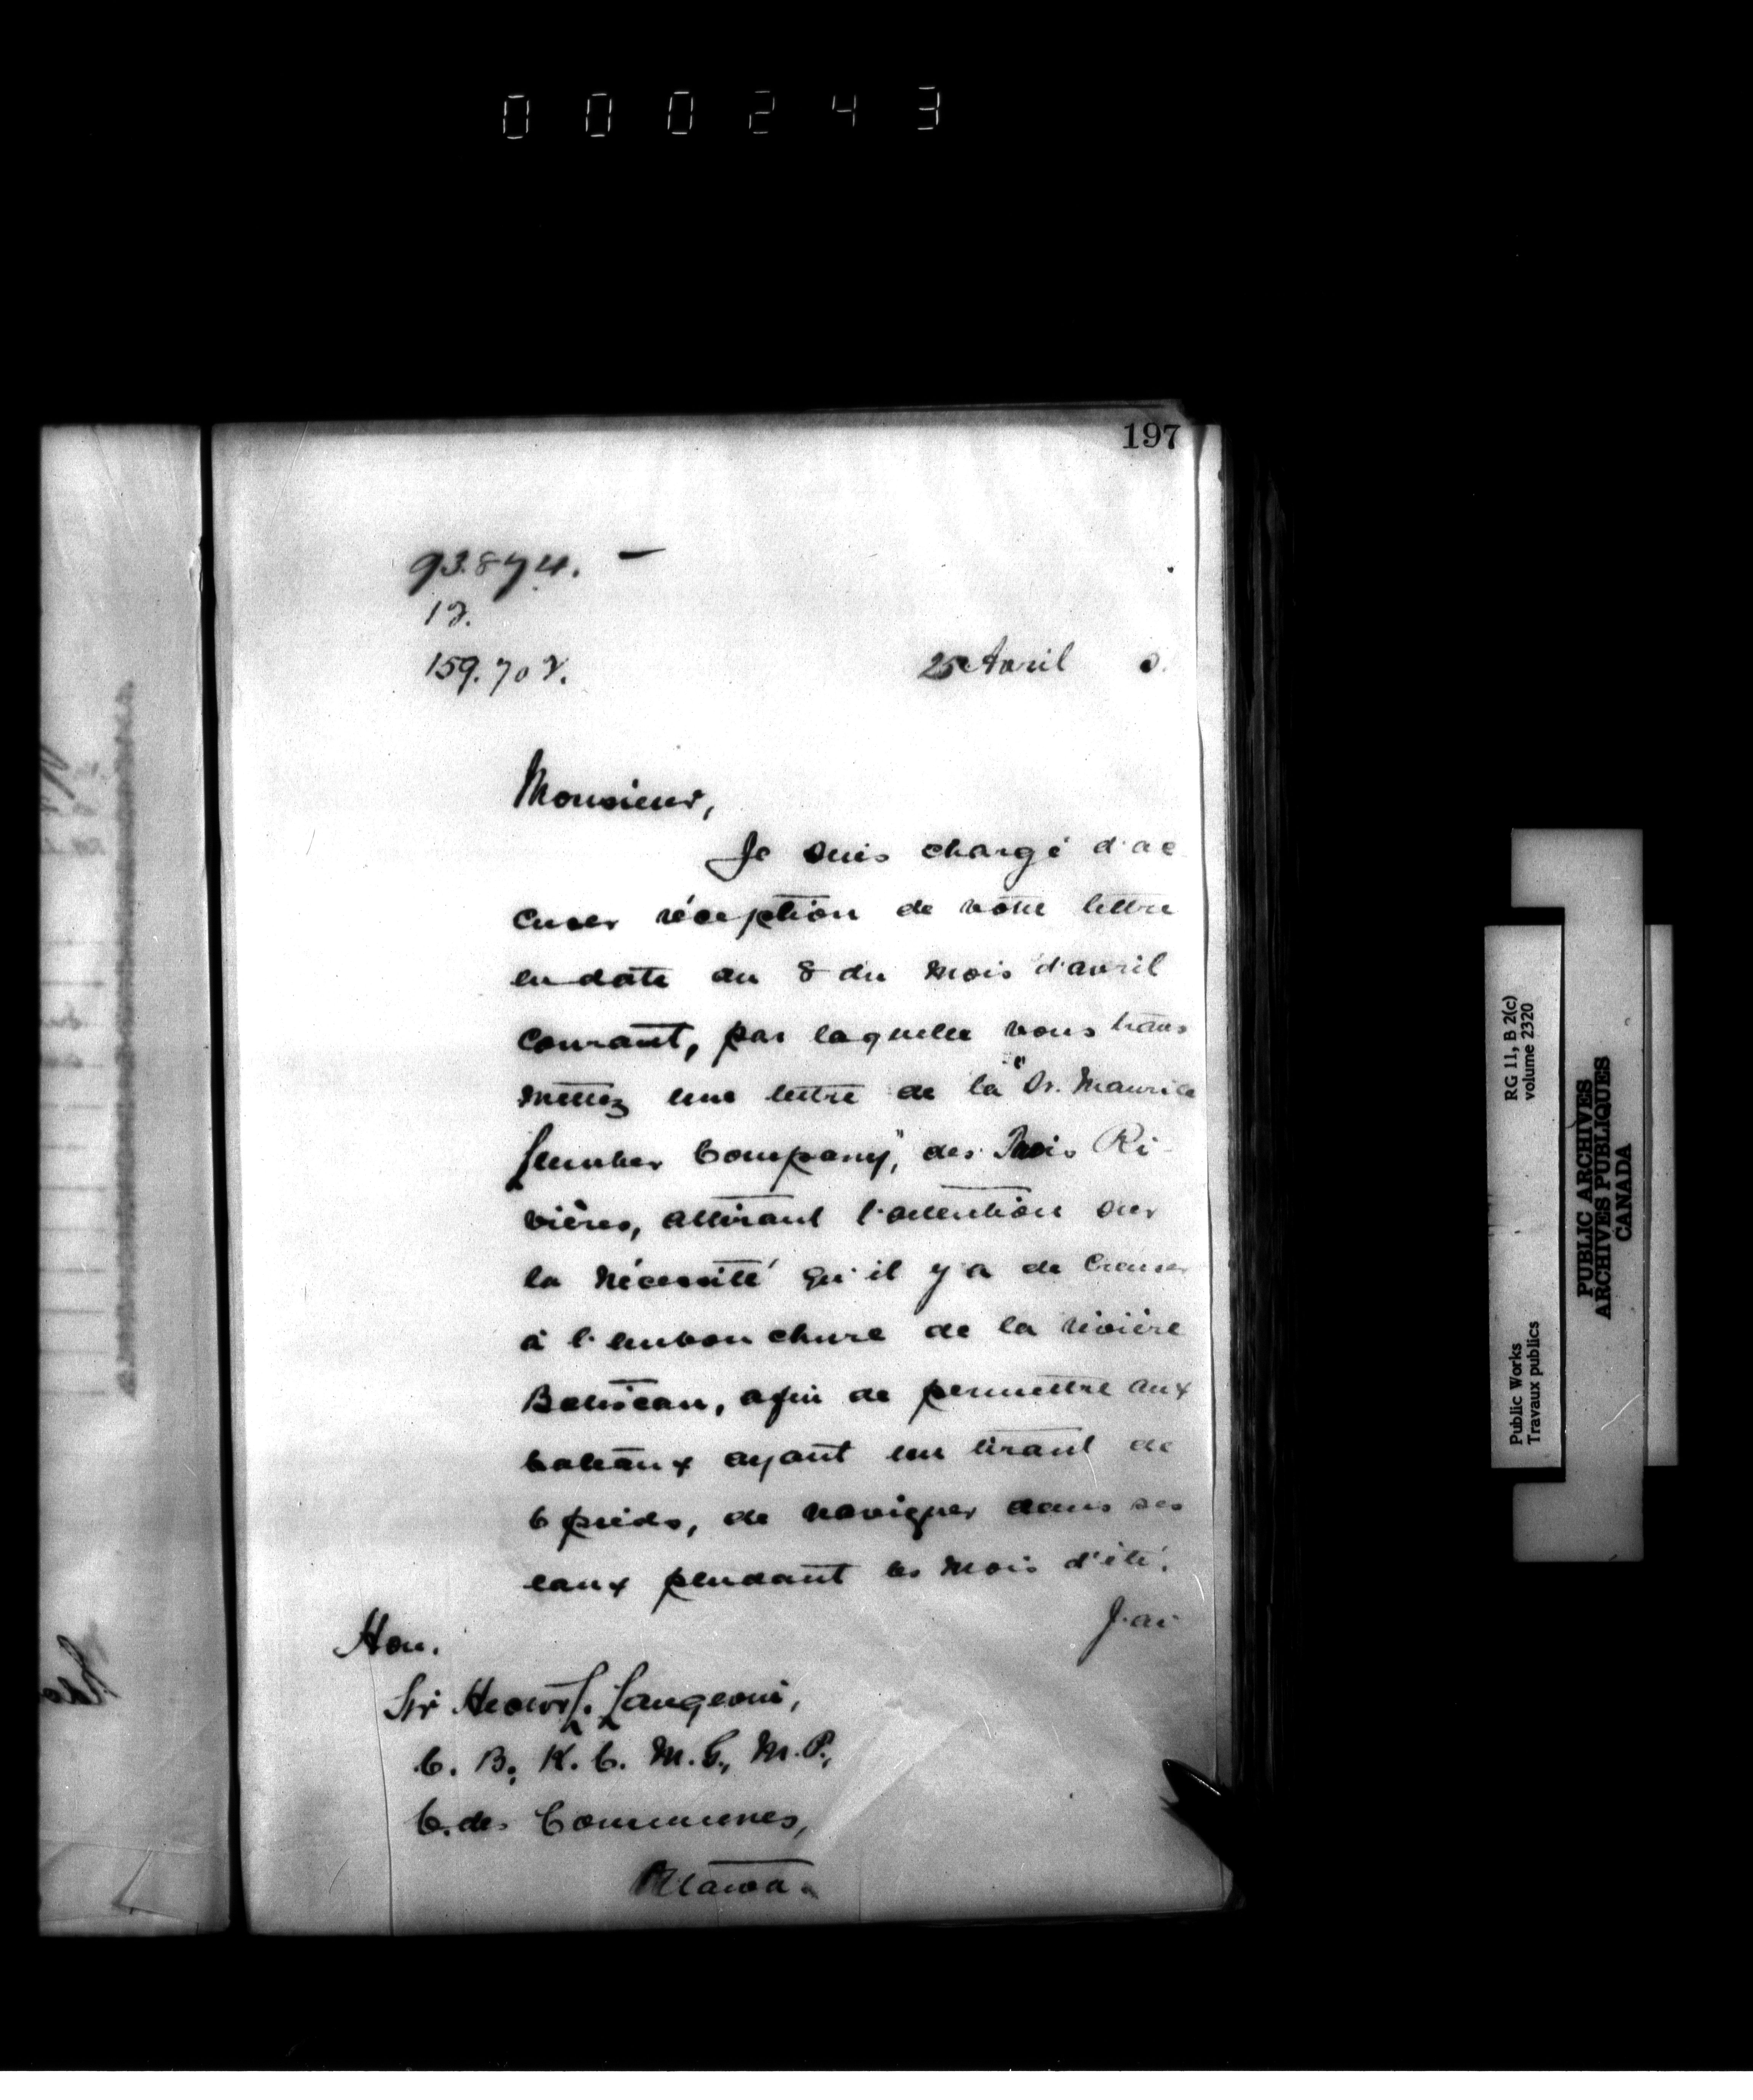 000243
197
93.874.
17.
159.702.
25 Avril 5.
Monsieur,
Je suis chargé d'ac
cuser réception de votre lettre
en date du 8 du mois d'avril
courant, par laquelle vous trans
mettez une lettre de la "St. Maurice
Lumber Company", des Trois Ri-
vières, attirant l'attention sur
la nécessité qu'il y a de creuser
à l'embouchure de la rivière
Batiscan, afin de permettre aux
bateaux ayant un tirant de
6 pieds, de naviguer dans ses
eaux pendant les mois d'été.
J'ai
Hon.
Sir Hector L. Langevin,
C. B., K. C. M. G., M. P.,
C. des Communes,
Ottawa.
RG 11, B 2(c)
volume 2320
Public Works
Travaux publics
PUBLIC ARCHIVES
ARCHIVES PUBLIQUES
CANADA